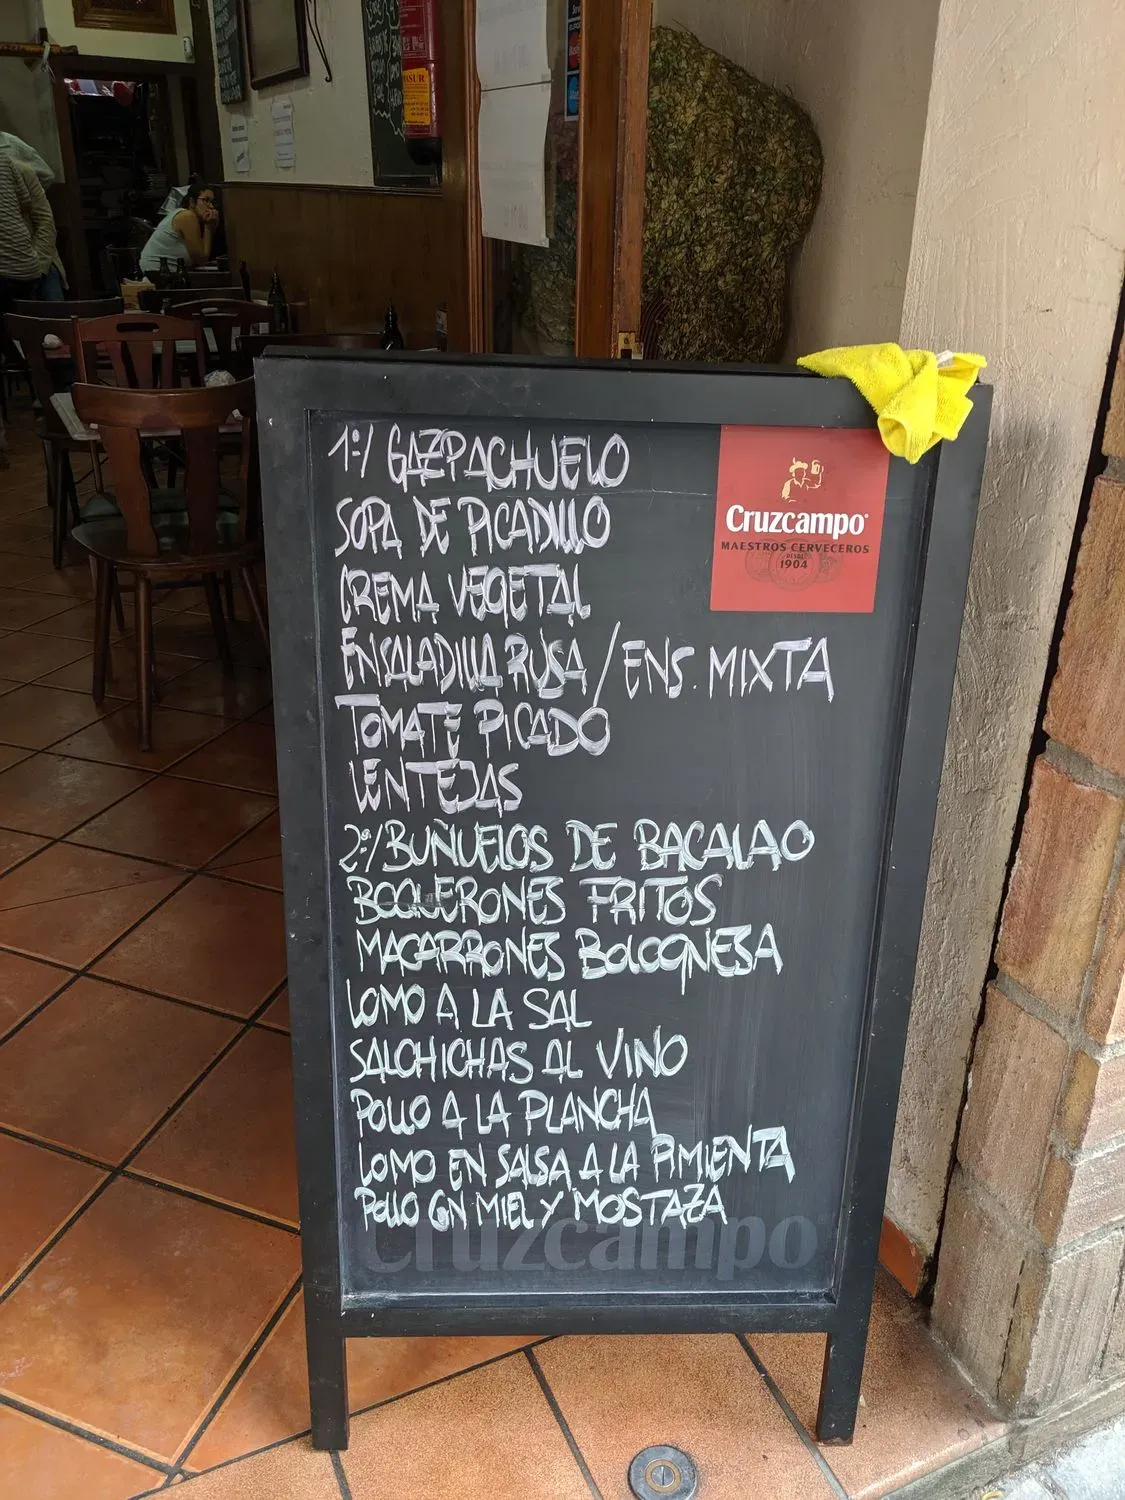 1º/ GAZPACHUELO
SOPA DE PICADILLO
CREMA VEGETAL
ENSALADILLA RUSA / ENS. MIXTA
TOMATE PICADO
LENTEJAS
2º/ BUÑUELOS DE BACALAO
BOQUERONES FRITOS
MACARRONES BOLOGNESA
LOMO A LA SAL
SALCHICHAS AL VINO
POLLO A LA PLANCHA
LOMO EN SALSA A LA PIMIENTA
POLLO CON MIEL Y MOSTAZA
Cruzcampo
MAESTROS CERVECEROS
DESDE
1904
Cruzcampo